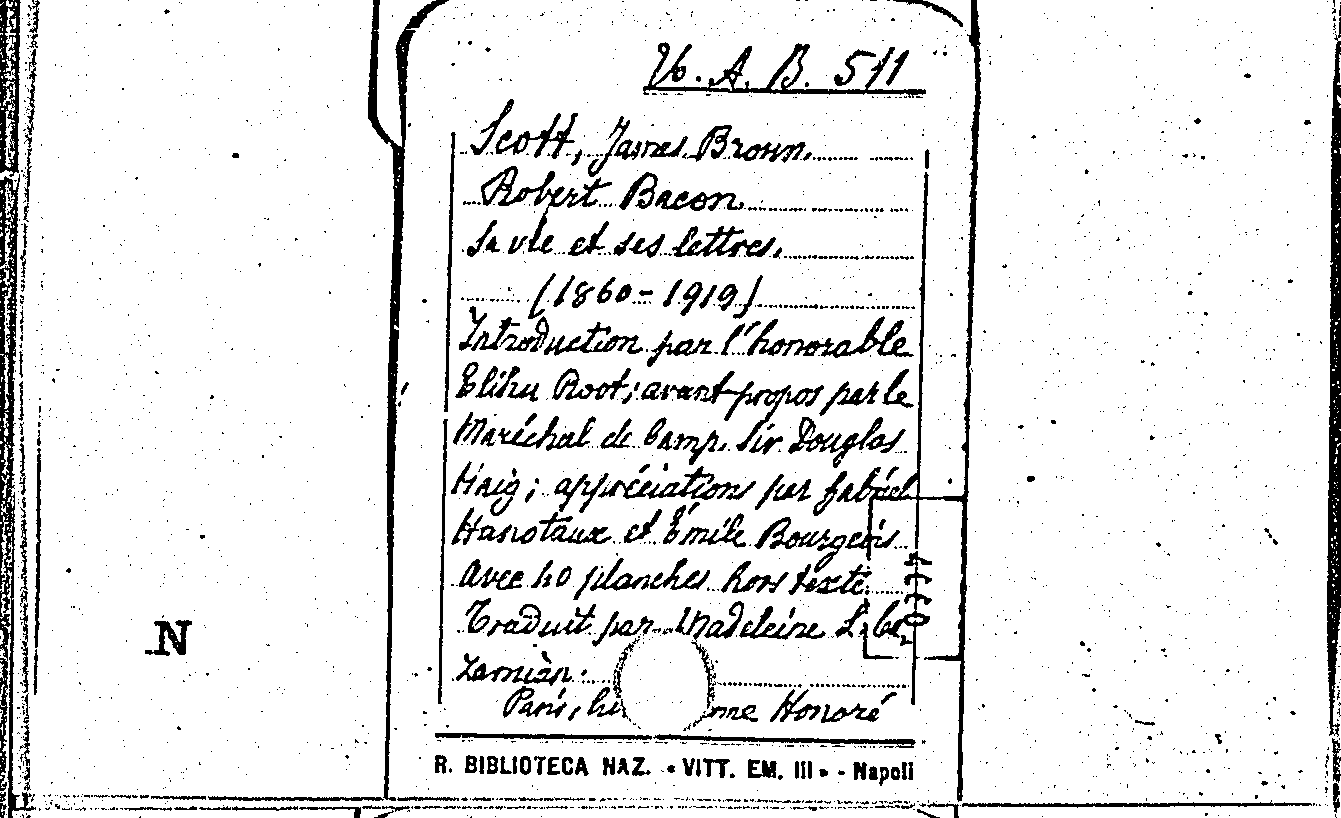 V6. A. B. 511
Scott, James Brown.
Robert Bacon.
Sa vie et ses lettres.
(1860-1919)
Introduction par l'honorable
Elihu Root; avant-propos par le
Maréchal de Camp. Sir Douglas
Haig; appréciations par Gabriel
Hanotaux et Émile Bourgeois
Avec 40 planches hors texte.
Traduit par Madeleine L.
zamian.
N
Paris, me Honoré
R. BIBLIOTECA NAZ. « VITT. EM. III » - Napoli